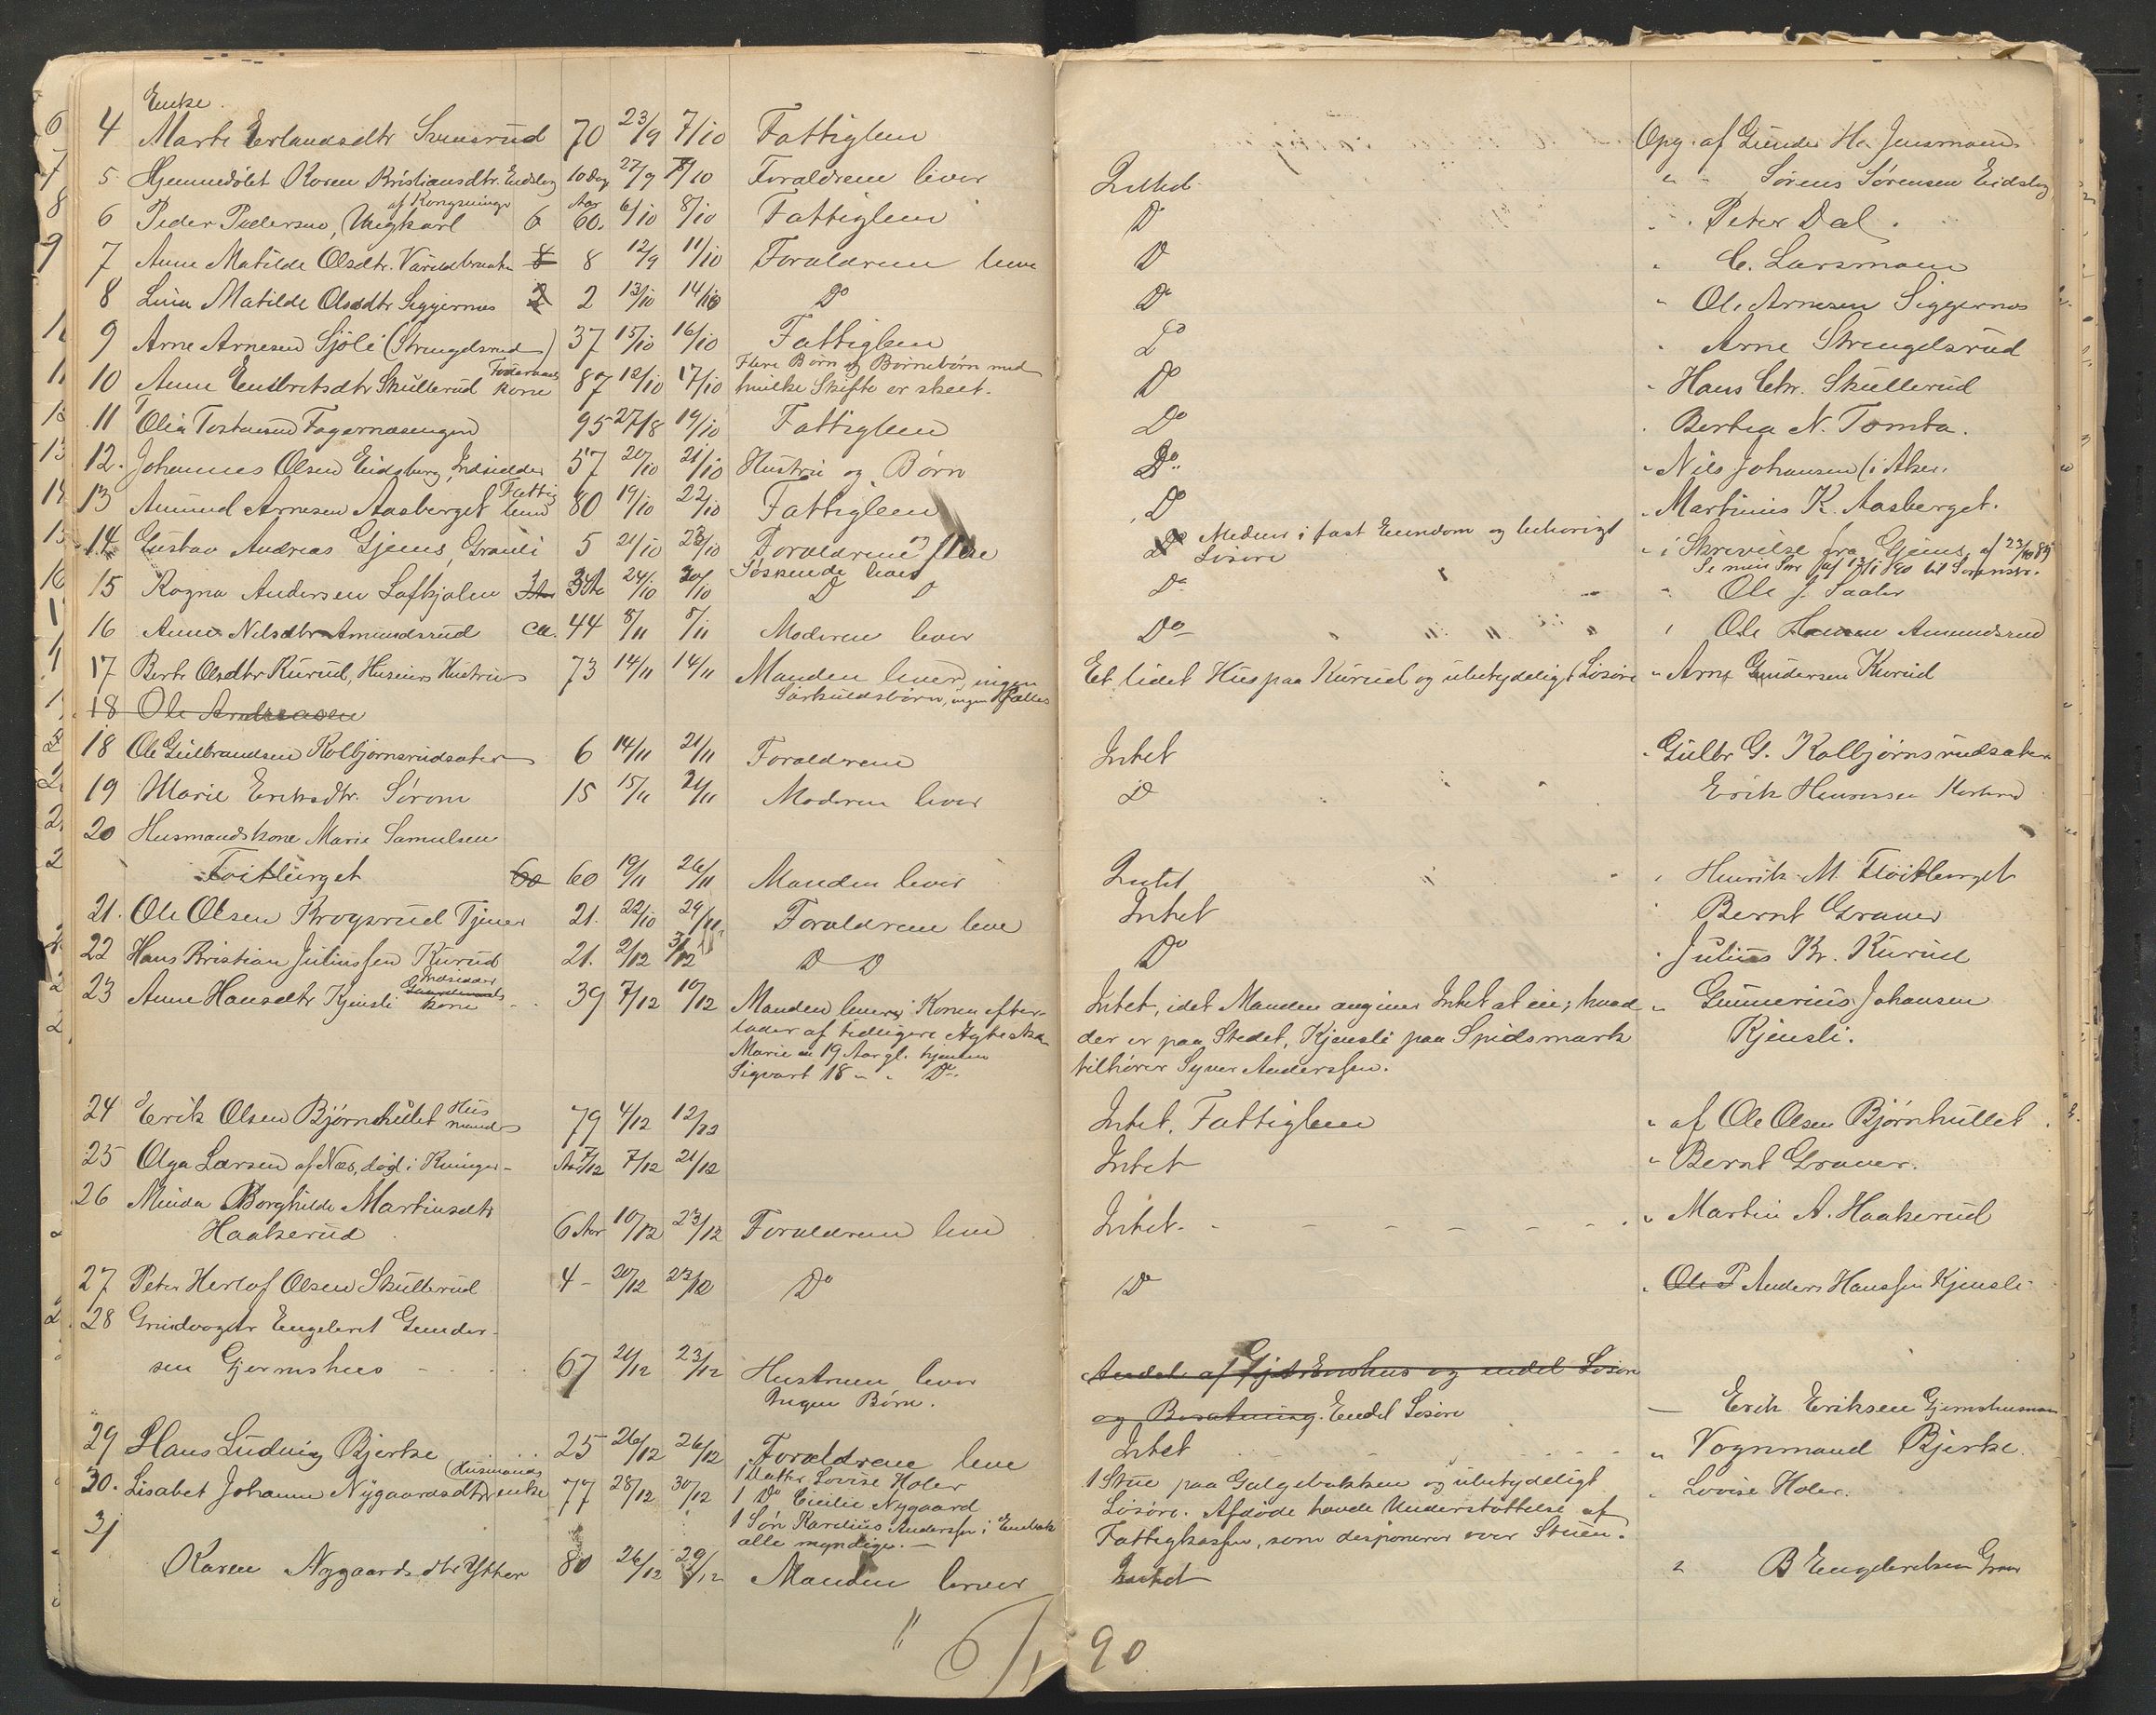 Enke
4 Marte Erlandsdtr Svensrud 70 23/9 7/10 Fattiglem Opg. af Gunder H. Jensmoen
5 Hjemmedøbt Karen Kristiansdtr. Eidsbug 10 Dag 27/9 7/10 Forældrene lever Intet " " Sørens Sørensen Eidsbug
af Kongsvinger Aar
6 Peder Pedersen, Ungkarl 60 6/10 8/10 Fattiglem Do " Peter Dal.
7 Anne Matilde Olsdtr. 8 8 12/9 11/10 Forældrene leve Do " C. Larsmoen
8 Lina Matilde Olsdtr Siggernæs 2 2 13/10 14/10 Do Do " Ole Arnesen Siggernæs
9 Arne Arnesen Sjøli (Strengelsrud) 37 15/10 16/10 Fattiglem Do " Arne Strengelsrud
10 Anne Embretsdtr Skullerud Foderaads kone 87 12/10 17/10 Flere Børn og Børnebørn med
hvilke Skifte er skeet. Do " Hans Chr. Skullerud
11 Olia Fagernæsengen 95 27/8 19/10 Fattiglem Do " Berthea N. Tomta.
12. Johannes Olsen Eidsberg, Indsidder 57 20/10 21/10 Hustru og Børn Do " Nils Johansen i Aker.
13 Amund Arnesen Aasberget Fattig lem 80 19/10 22/10 Fattiglem Do " Martinius K. Aasberget.
14 Gustav Andreas Gjems, Granli 5 21/10 23/10 Forældrene, flere
Søskende lever Medeier i fast Eiendom og tilhørigt
Løsøre " i Skrivelse fra Gjems af 23/10 89
Se min Skr af
15 Ragna Andersen Løfkjølen 24/10 30/10 D D Do " Ole J. Saater
16 Anne Nilsdtr Amundsrud ca. 44 8/11 8/11 Moderen lever Do " Ole Hansen Amundsrud
17 Berte Olsdtr Kurud, Huseiers Hustru 73 14/11 14/11 Manden lever, ingen
Særkuldsbørn, ingen Fælles Et lidet Hus paa Kurud og ubetydeligt Løsøre " Arne Gundersen Kurud
18 Ole Andreasen
18 Ole Gulbrandsen Kolbjørnsrudsæter 6 14/11 21/11 Forældrene Intet " Gulbr G. Kolbjørnsrudsæter
19 Marie Eriksdtr. Sørom 15 15/11 21/11 Moderen lever D Erik
20 Husmandskone Marie Samuelsen
Fløitberget 60 60 19/11 26/11 Manden lever Intet " Henrik M. Fløitberget
21. Ole Olsen Krogsrud Tjener 21. 22/10 29/11 Forældrene leve Intet " Bernt Graver
22 Hans Kristian Juliussen Kurud 21. 2/12 3/12 D D Do " Julius Kr. Kurud
23 Anne Hansdtr Kjensli Indsidder Gaardmands kone 39 7/12 10/12 Manden lever; Konen efter-
lader af tidligere Ægteskab
Marie ca 19 Aar gl. hjemme
Sigvart 18 " " Do. Intet, idet Manden angiver Intet at eie; hvad
der er paa Stedet, Kjensli paa Spidsmark
tilhører Syver Anderssen. " Gunerius Johansen
Kjensli.
24 Erik Olsen Bjørnhullet Hus mand 79 4/12 12/12 Intet. Fattiglem " af Ole Olsen Bjørnhullet
25 Olga Larsen af Næs, død i Kvinger- 7/12 21/12 Intet " Bernt Graver.
26 Minda Borghilde Martinsdtr
Haakerud 6 Aar 10/12 23/12 Forældrene leve Intet. " Martin A. Haakerud
27 Peter Herlof Olsen Skullerud 4 - 20/12 23/12 Do Do " Ole P Anders Hanssen Kjensli
28 Engebret Gunder-
sen Gjermshus 67 21/12 23/12 Hustruen lever
Ingen Børn. Andel af Gjermshus og endel Løsøre
og Besætning. Endel Løsøre — Erik Eriksen Gjermshusmoen
29 Hans Ludvig Bjerke 25 26/12 26/12 Forældrene leve Intet " Vognmand Bjerke.
30. Lisabet Johanne Nygaardsdtr Husmands enke 77 28/12 30/12 1 Datter Lovise Holer
1 Do Cecilie Nygaard
1 Søn Karelius Anderssen i Enebak
alle myndige. — 1 Stue paa Galgebakken og ubetydeligt
Løsøre. Afdøde havde Understøttelse af
Fattigkassen, som desponerer over Stuen. " Lovise Holer.
31 Karen Nygaardsdtr Ytter 80 26/12 29/12 Manden lever Intet " B Engebretsen Graver
6/1 90